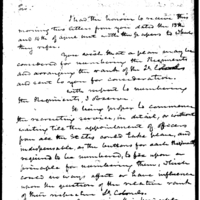 Sir:
I had the honour to receive this
morning two letters from your dated the 13th
and 14th of June and with the papers to which
they refer.
You wish that a plan may be
considered for numbering the Regiments
and arranging the rank of the Lt Colonels
and sent to you for consideration.
With respect to numbering
the Regiments, I observe
It being proper to commence
the recruiting service, in detail, or without
waiting till the appointment of officers
from all the States could take place, and
indispensable, as the Clothing for each Regiment
required to be numbered, to fix upon some
principle for numbering them, which
could in no ways affect or have influence
upon the question of the relative rank
of their respective Lt Colonels.